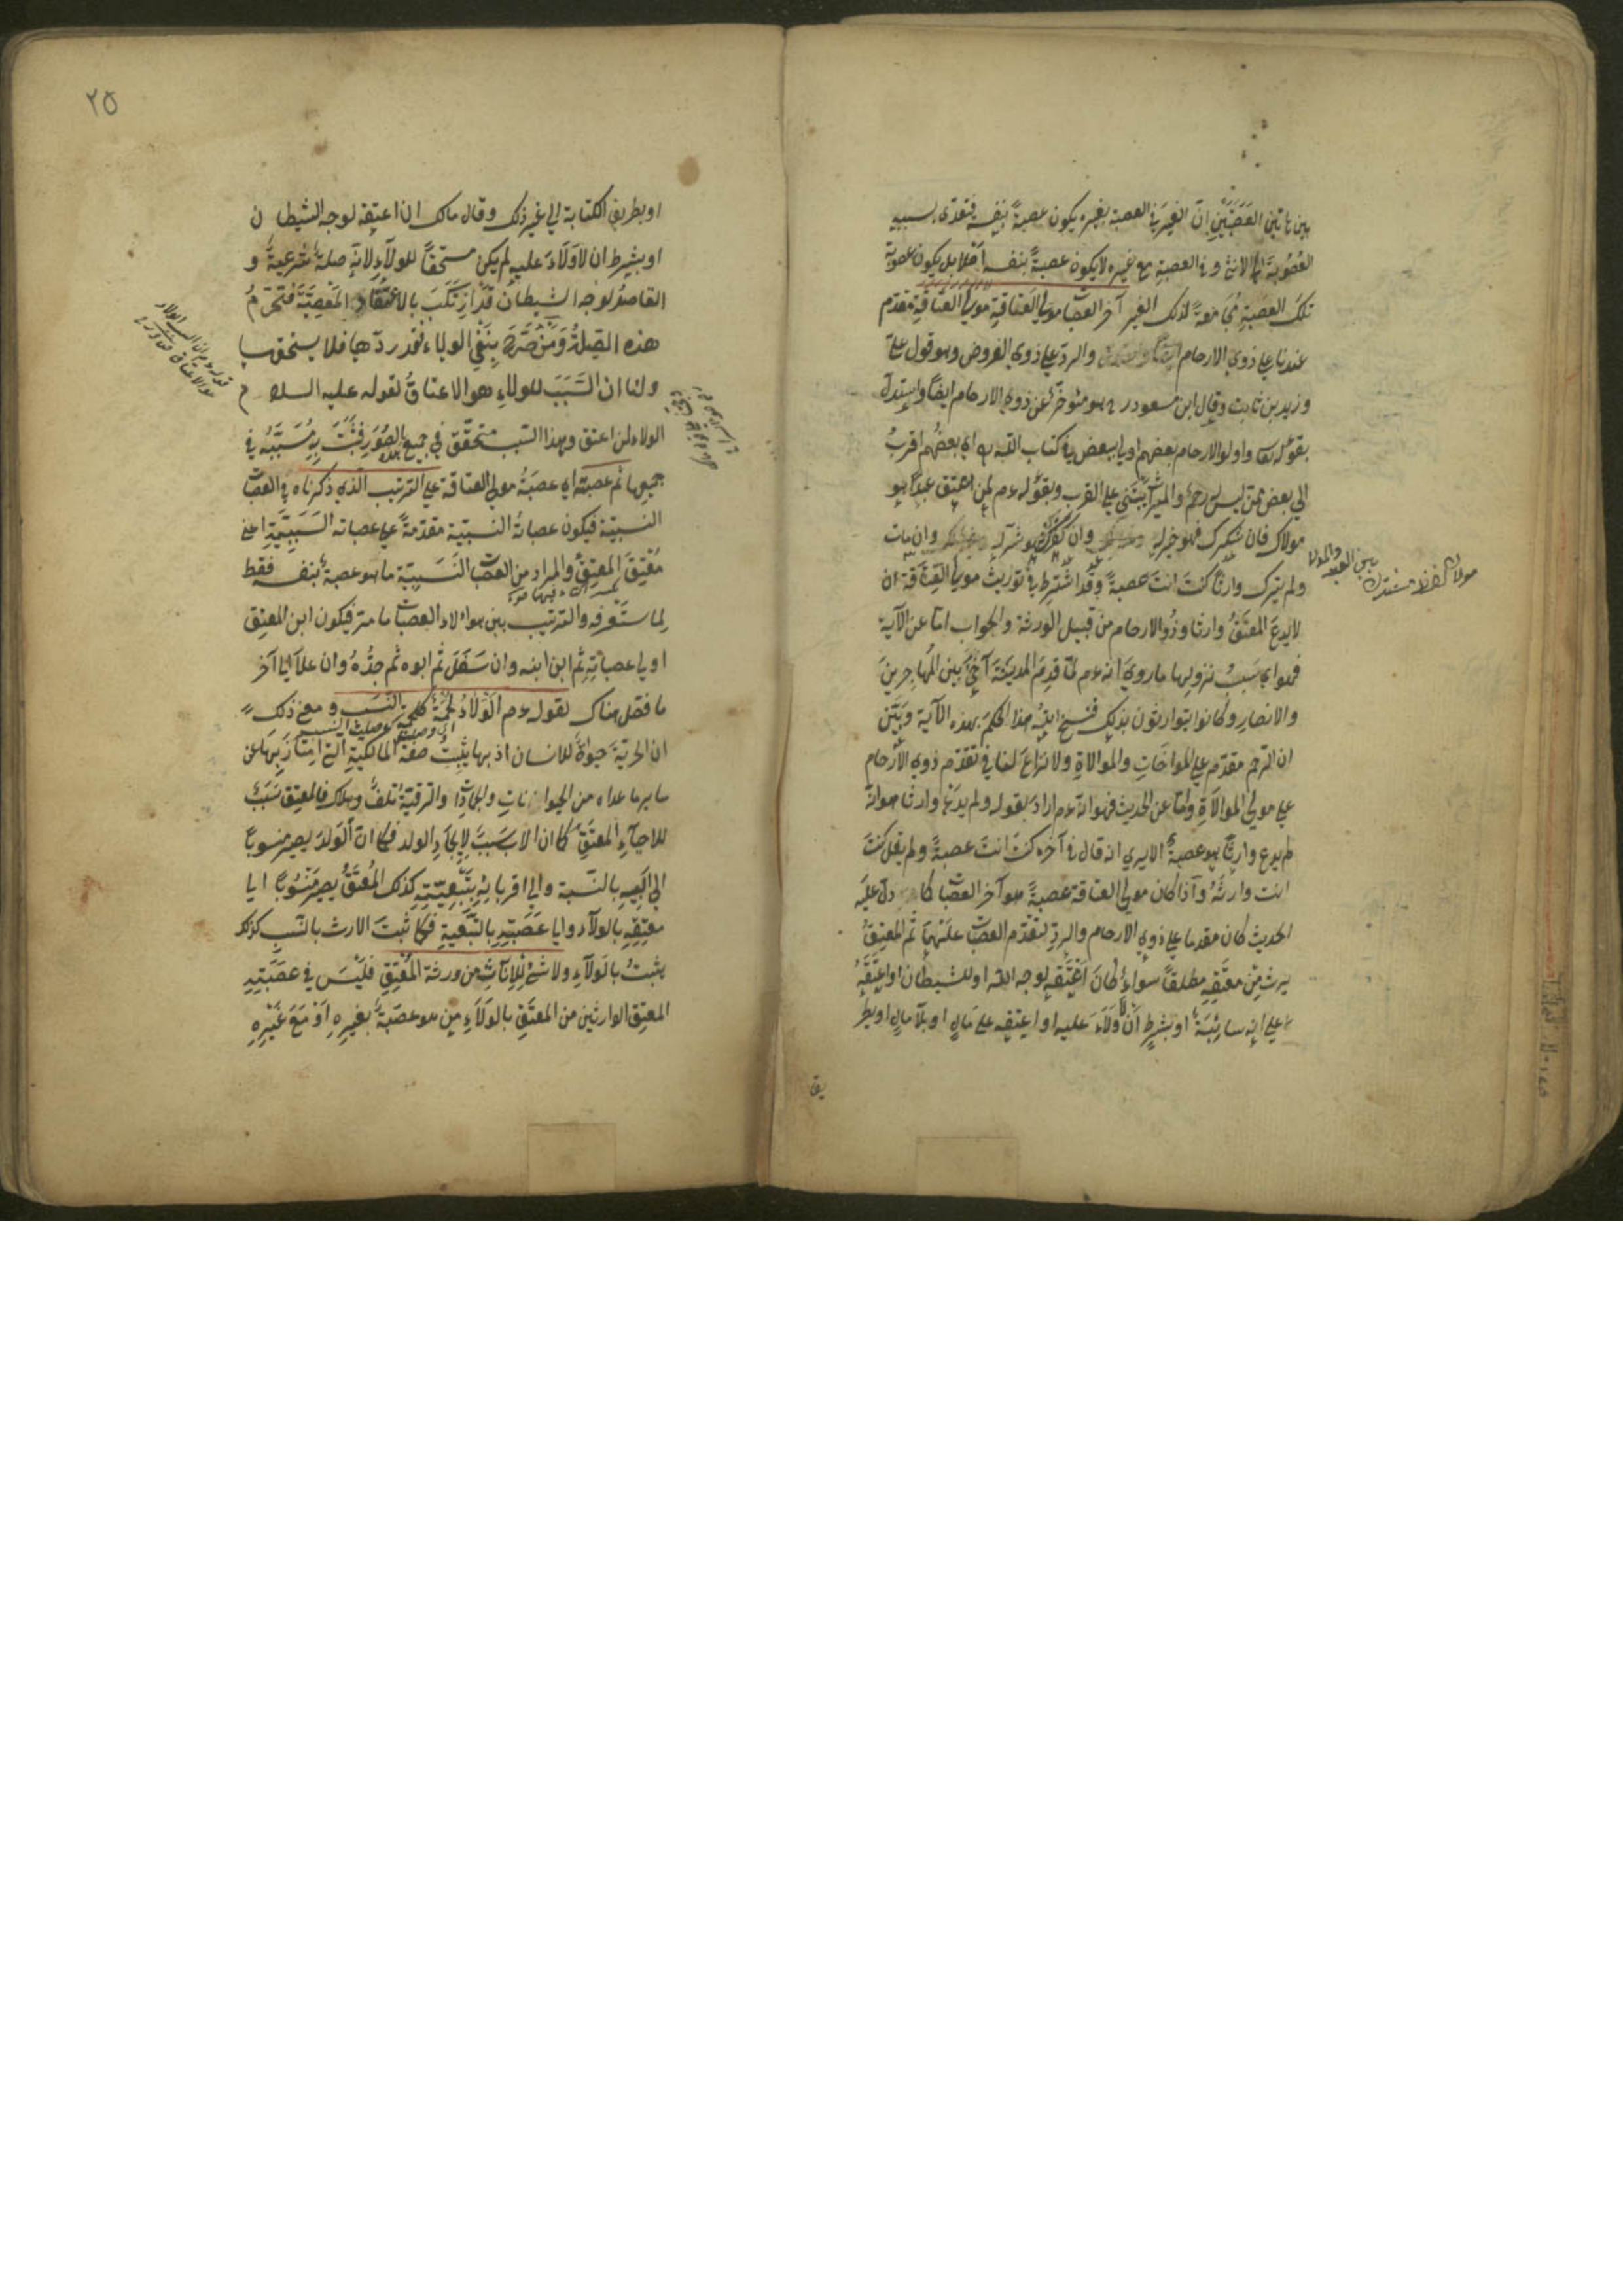 بين هاتين العصبتين ان الغير في العصبة بغيره يكون عصبة بنفسه فتتعدى بسببه
العصوبة الى الانثى وفي العصبة مع غيره لا يكون عصبة بنفسه اصلا بل يكون عصوبة
تلك العصبة مجامعة لذلك الغير آخر العصبات مولى العتاقة مولى العتاقة مقدم
عندنا على ذوي الارحام والرد على ذوي الفروض وهو قول علي
وزيد بن ثابت وقال ابن مسعود رض هو مؤخر عن ذوي الارحام ايضا واستدل
بقوله تعا واولوا الارحام بعضهم اولى ببعض في كتاب الله اي بعضهم اقرب
الى بعض ممن ليس له رحم والميراث يبتنى على القرب وبقوله عم لمن اعتق عبدا هو
مولاك فان شكرك فهو خير له وان كفرك فهو شر له وان مات
ولم يترك وارثا كنت انت عصبة وقد اشترط في توريث مولى العتاقة ان
لا يدع المعتق وارثا وذوا الارحام من قبيل الورثة والجواب اما عن الآية
فهو اي سبب نزولها ما روي انه عم لما قدم المدينة آخى بين المهاجرين
والانصار وكانوا يتوارثون بذلك فنسخ الله هذا الحكم بهذه الآية وبين
ان الرحم مقدم على المواخات والموالاة ولا نزاع لنا في تقدم ذوي الارحام
على مولى الموالاة واما عن الحديث فهو انه عم اراد بقوله ولم يدع وارثا هو انه
لم يدع وارثا هو عصبة الا يرى انه قال في آخره كنت انت عصبة ولم يقل كنت
انت وارثه واذا كان مولى العتاقة عصبة هو آخر العصبات كما دل عليه
الحديث كان مقدما على ذوي الارحام والرد لتقدم العصبات عليهما ثم المعتق
يرث من معتقه مطلقا سواء كان اعتقه لوجه الله او للشيطان او اعتقه
على انه سائبة او بشرط ان لا ولاء عليه او اعتقه على مال او بلا مال او بطر
يق
مولاك لفظ مشترك بين العبد والمولى
٢٥
او بطريق الكتابة الى غير ذلك وقال مالك ان اعتقه لوجه الشيطان
او بشرط ان لا ولاء عليه لم يكن مستحقا للولاء لانه صلة شرعية و
القاصد لوجه الشيطان قد ارتكب بالاعتاق المعصية فتحرم
هذه الصلة ومن صرح بنفي الولاء فقد ردها فلا يستحق بها
ولنا ان السبب للولاء هو الاعتاق لقوله عليه السلام
الولاء لمن اعتق وهذا السبب متحقق في جميع الصور فثبت به مسببه في
جميعها ثم عصبته اي عصبة مولى العتاقة على الترتيب الذي ذكرناه في العصبات
النسبية فيكون عصباته النسبية مقدمة على عصباته السببية اعني
معتق المعتق والمراد من العصبات النسبية ما هو عصبة بنفسه فقط
لما ستعرفه والترتيب بين هؤلاء العصبات ما مر فيكون ابن المعتق
اولى عصباته ثم ابن ابنه وان سفل ثم ابوه ثم جده وان علا الى آخر
ما فصل هناك لقوله عم الولاء لحمة كلحمة النسب ومعنى ذلك
اي وصلة كوصلة النسب
ان الحرية حيوة للانسان اذ بها يثبت صفة المالكية التي امتاز بها عن
سائر ما عداه من الحيوانات والجمادات والرقية تلف وهلاك فالمعتق سبب
للاحياء المعتق كما ان الاب سبب لايجاد الولد فكما ان الولد يصير منسوبا
الى ابيه بالنسبة والى اقربائه بتبعيته كذلك المعتق يصير منسوبا الى
معتقه بالولاء والى عصبته بالتبعية فكما ثبت الارث بالنسب كذلك
يثبت بالولاء ولا شئ للاناث من ورثة المعتق فليس في عصبته
المعتق الوارثين من المعتق بالولاء من هو عصبة بغيره او مع غيره